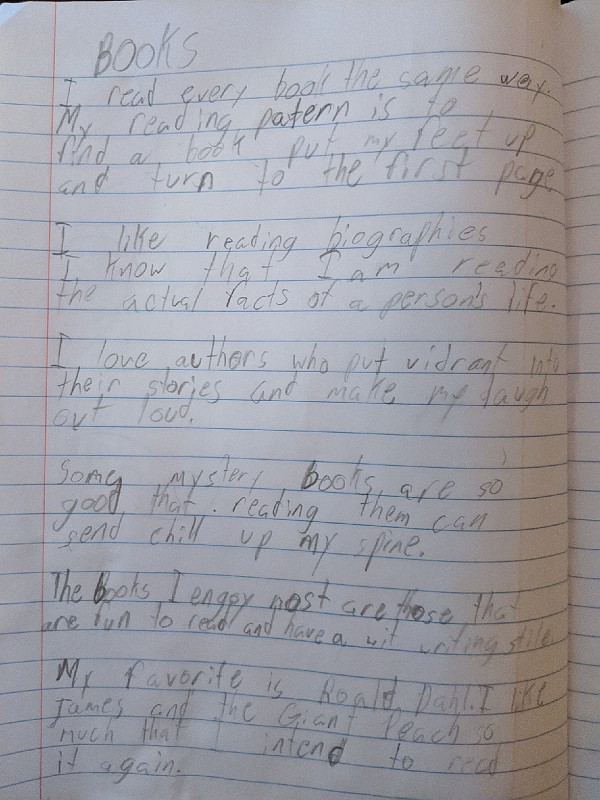 BOOKS
I read every book the same way.
My reading patern is to
find a book put my feet up
and turn to the first page
I like reading biographies
I know that I am reading
the actual facts of a person's life.
I love authors who put vidrant into
their stories and make my laugh
out loud.
Some mystery books are so
good, that reading them can
send chill up my spine.
The books I engoy most are those that
are fun to read and have a wit writing stile
My favorite is Roald Dahl. I like
James and the Giant Peach so
much that I intend to read
it again.